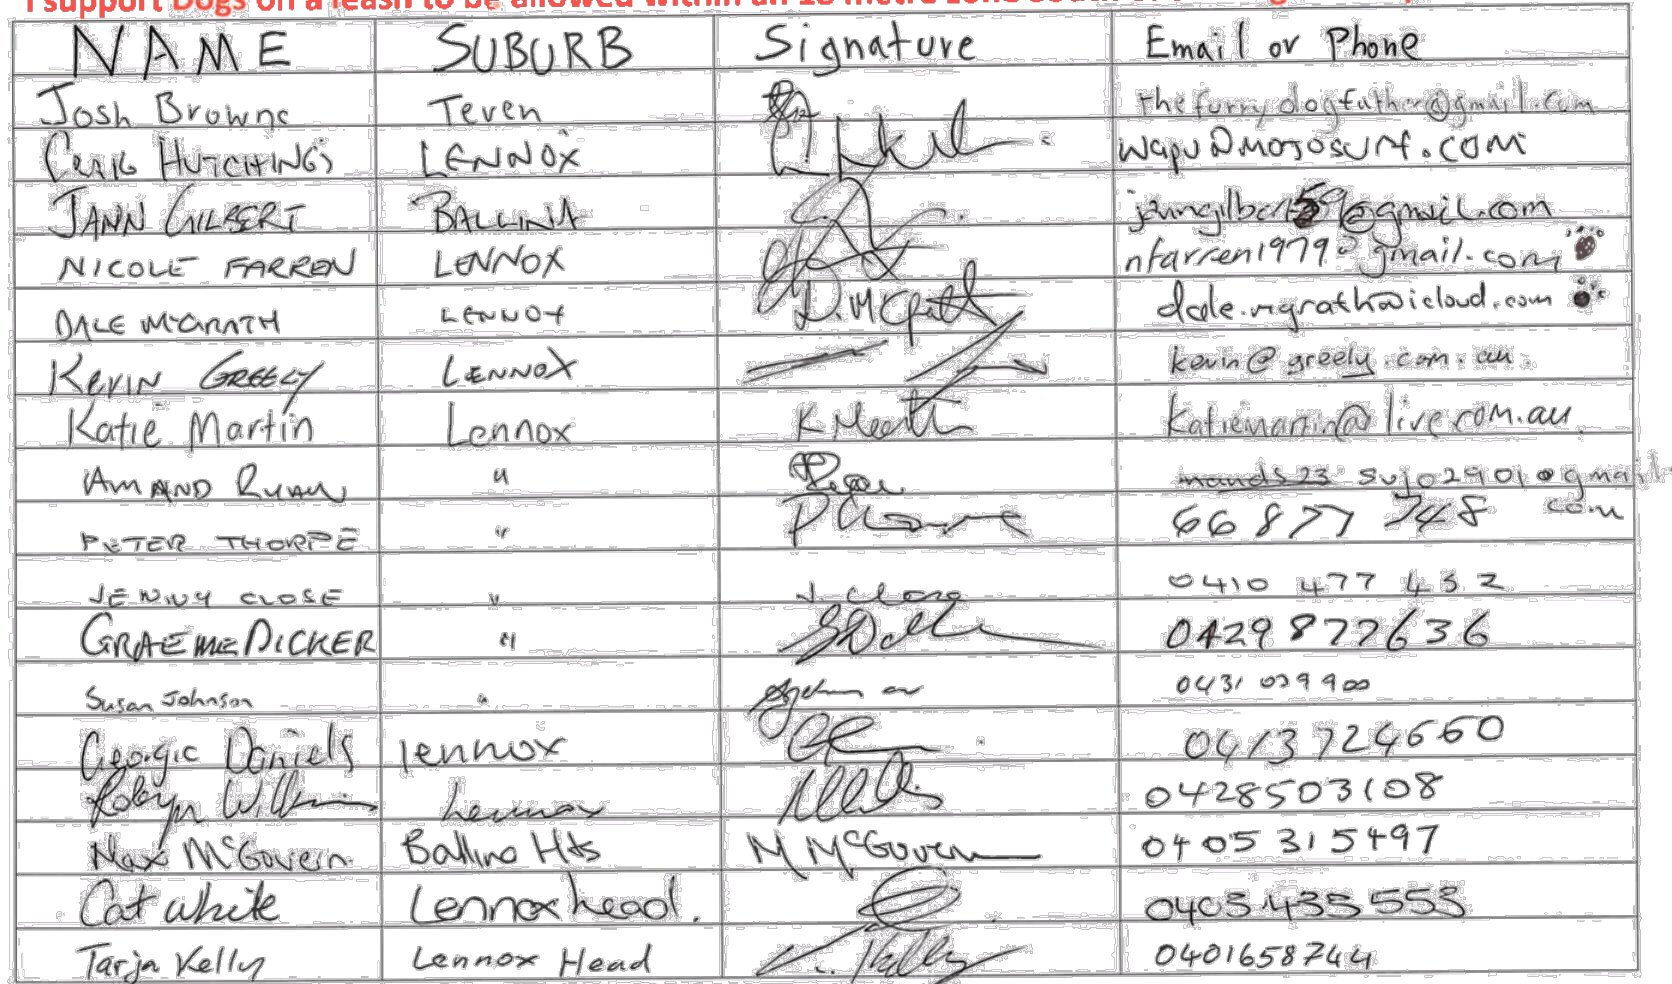 I support Dogs on a leash to be allowed within an 18 metre zone South of
NAME SUBURB Signature Email or Phone
Josh Browne Teven thefurrydogfather@gmail.com
Craig HUTCHINGS LENNOX wapu@mojosurf.com
JANN GILBERT BALLINA janngilbert59@gmail.com
NICOLE FARREN LENNOX nfarren1979@gmail.com
DALE McGRATH LENNOX D. McGrath dale.mgrath@icloud.com
KEVIN GREELY LENNOX kevin@greely.com.au
Katie Martin Lennox K Martin katiemartin@live.com.au
AMAND RYAN " sujo2901@gmail.com
PETER THORPE " 66 877 748
JENNY CLOSE " J. Close 0410 477 432
GRAEME DICKER " 0429 877636
Susan Johnson " 0431 039 900
Georgie Daniels lennox 0413 724660
Robyn Lennox 0428503108
Max McGovern Ballina Hts M McGovern 0405 315497
Cat white Lennox head. 0403 435 553
Tarja Kelly Lennox Head Kelly 0401658744